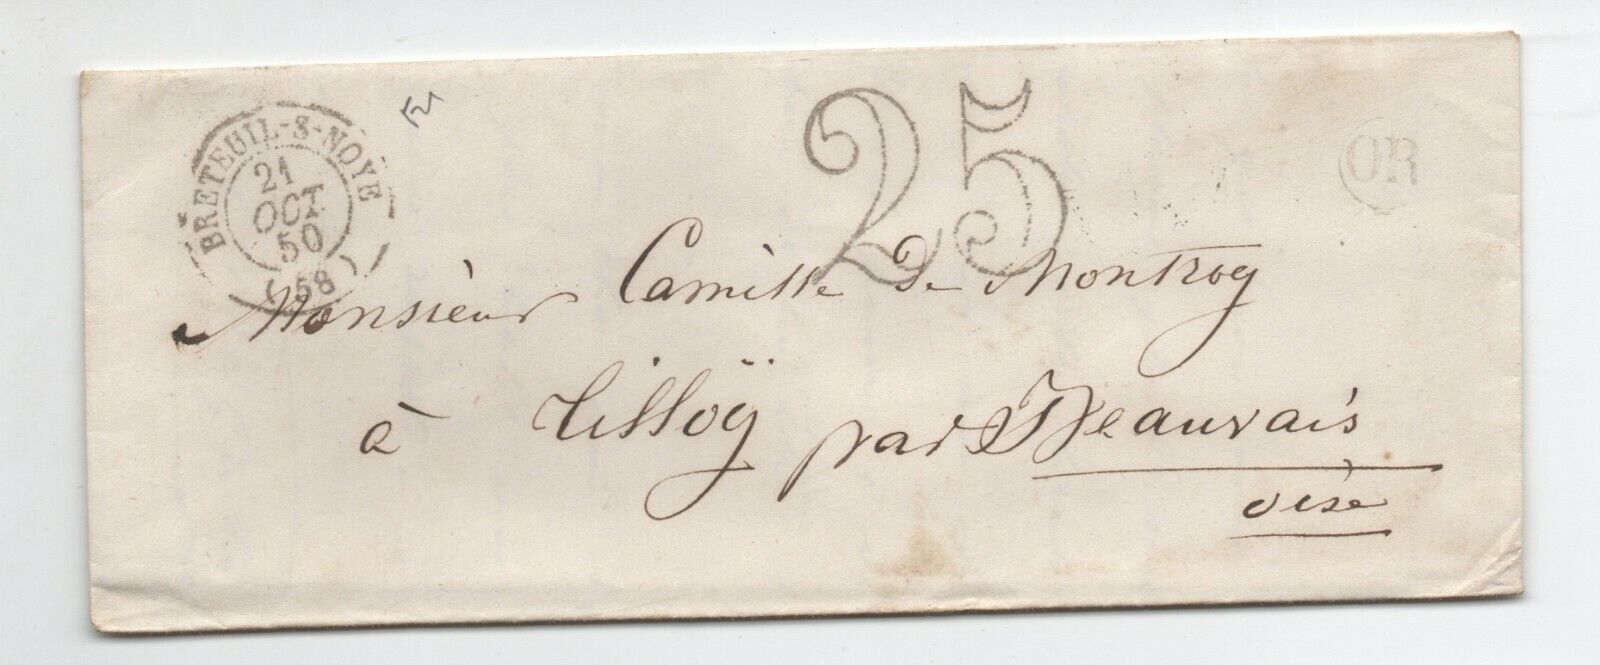 BRETEUIL-S-NOYE
21
OCT
50
(58)
25
OR
Monsieur Camille de Montroy
à Tilloÿ par Beauvais
oise